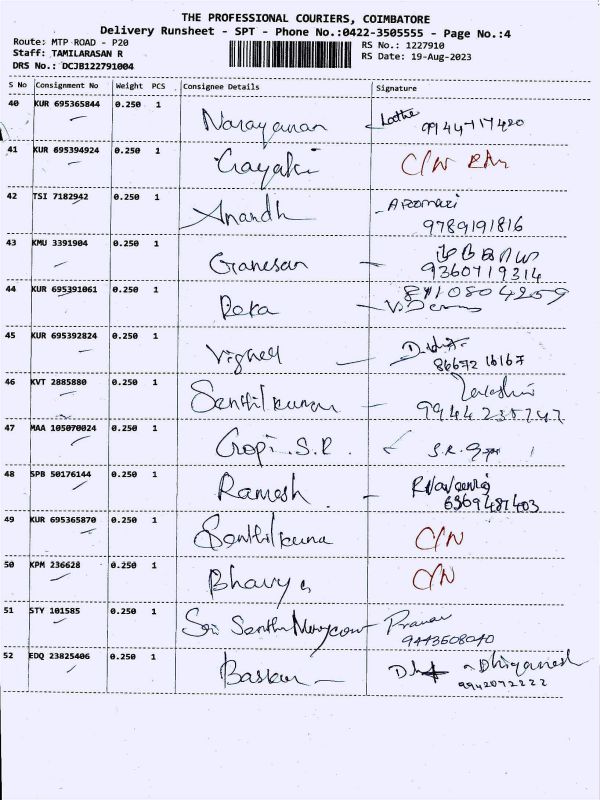 THE PROFESSIONAL COURIERS, COIMBATORE
Delivery Runsheet - SPT - Phone No.:0422-3505555 - Page No.:4
Route: MTP ROAD - P20 RS No.: 1227910
Staff: TAMILARASAN R RS Date: 19-Aug-2023
DRS No.: DCJB122791004
S No Consignment No Weight PCS Consignee Details Signature
40 KUR 695365844 0.250 1 Narayanan Latha 9944717420
41 KUR 695394924 0.250 1 Gayatri C/N
42 TSI 7182942 0.250 1 Anandh 9789191816
43 KMU 3391904 0.250 1 Ganesan 9360719314
44 KUR 695391061 0.250 1 Reka
45 KUR 695392824 0.250 1 Vignesh 86672 16167
46 KVT 2885880 0.250 1 Senthil kumar
47 MAA 105070024 0.250 1 Gopi .S.R. S.R. Gopi
48 SPB 50176144 0.250 1 Ramesh 6369481403
49 KUR 695365870 0.250 1 Senthil kuma C/N
50 KPM 236628 0.250 1 Bhavya C/N
51 STY 101585 0.250 1 Sri Pranav 9443608040
52 EDQ 23825406 0.250 1 Baskar 9942072222